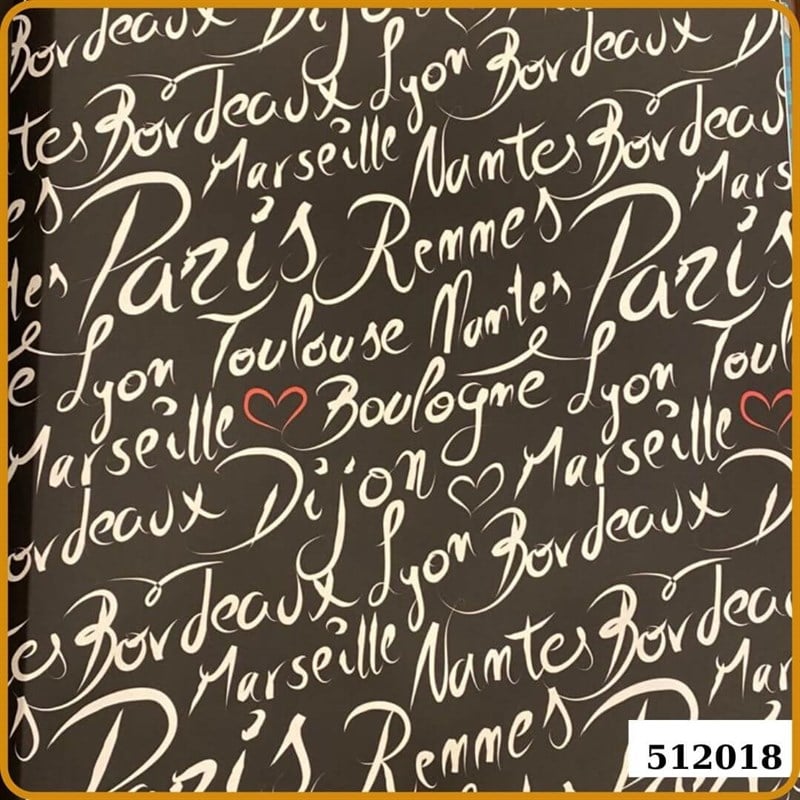 Bordeaux Dijon
Lyon Bordeaux D
tes Bordeaux
Marseille Nantes Bordeau
es Paris Rennes Mars
Paris
tes Toulouse Nantes
e Lyon Boulogne Lyon Toul
Marseille
Marseille
Bordeaux Dijon Bordeaux D
Lyon
es Bordeaux Bordea
Marseille Nantes Mar
s Paris Rennes Pa
512018